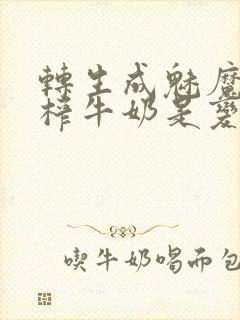 轉生成魅魔
榨牛奶是變
喫牛奶喝而包